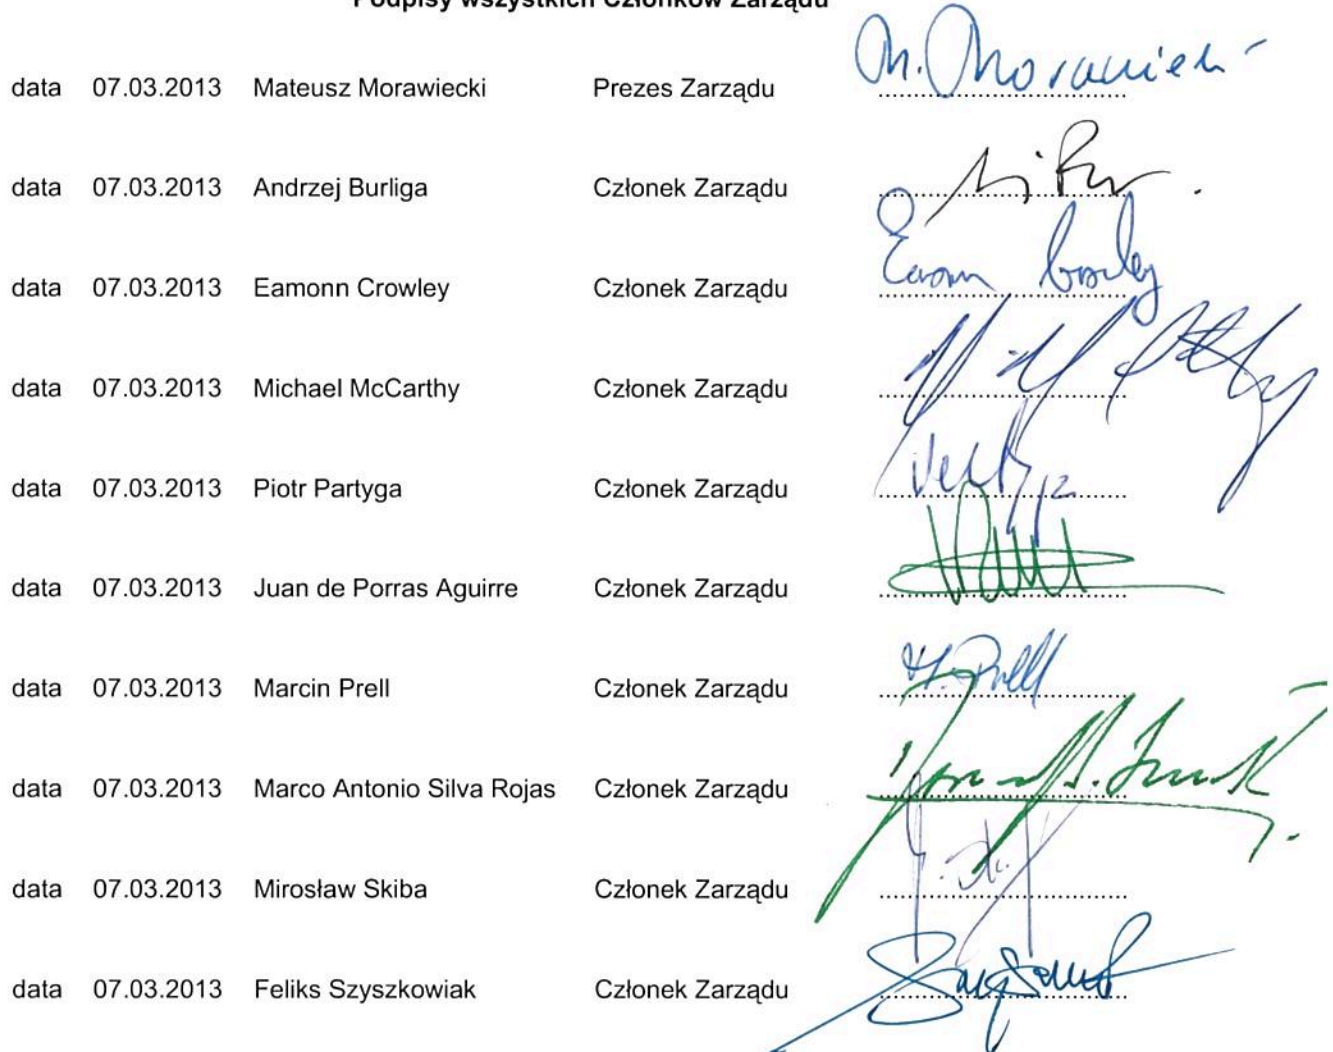 Podpisy wszystkich Członków Zarządu
data 07.03.2013 Mateusz Morawiecki Prezes Zarządu M. Morawiecki
data 07.03.2013 Andrzej Burliga Członek Zarządu
data 07.03.2013 Eamonn Crowley Członek Zarządu Eamonn Crowley
data 07.03.2013 Michael McCarthy Członek Zarządu
data 07.03.2013 Piotr Partyga Członek Zarządu
data 07.03.2013 Juan de Porras Aguirre Członek Zarządu
data 07.03.2013 Marcin Prell Członek Zarządu M. Prell
data 07.03.2013 Marco Antonio Silva Rojas Członek Zarządu
data 07.03.2013 Mirosław Skiba Członek Zarządu
data 07.03.2013 Feliks Szyszkowiak Członek Zarządu